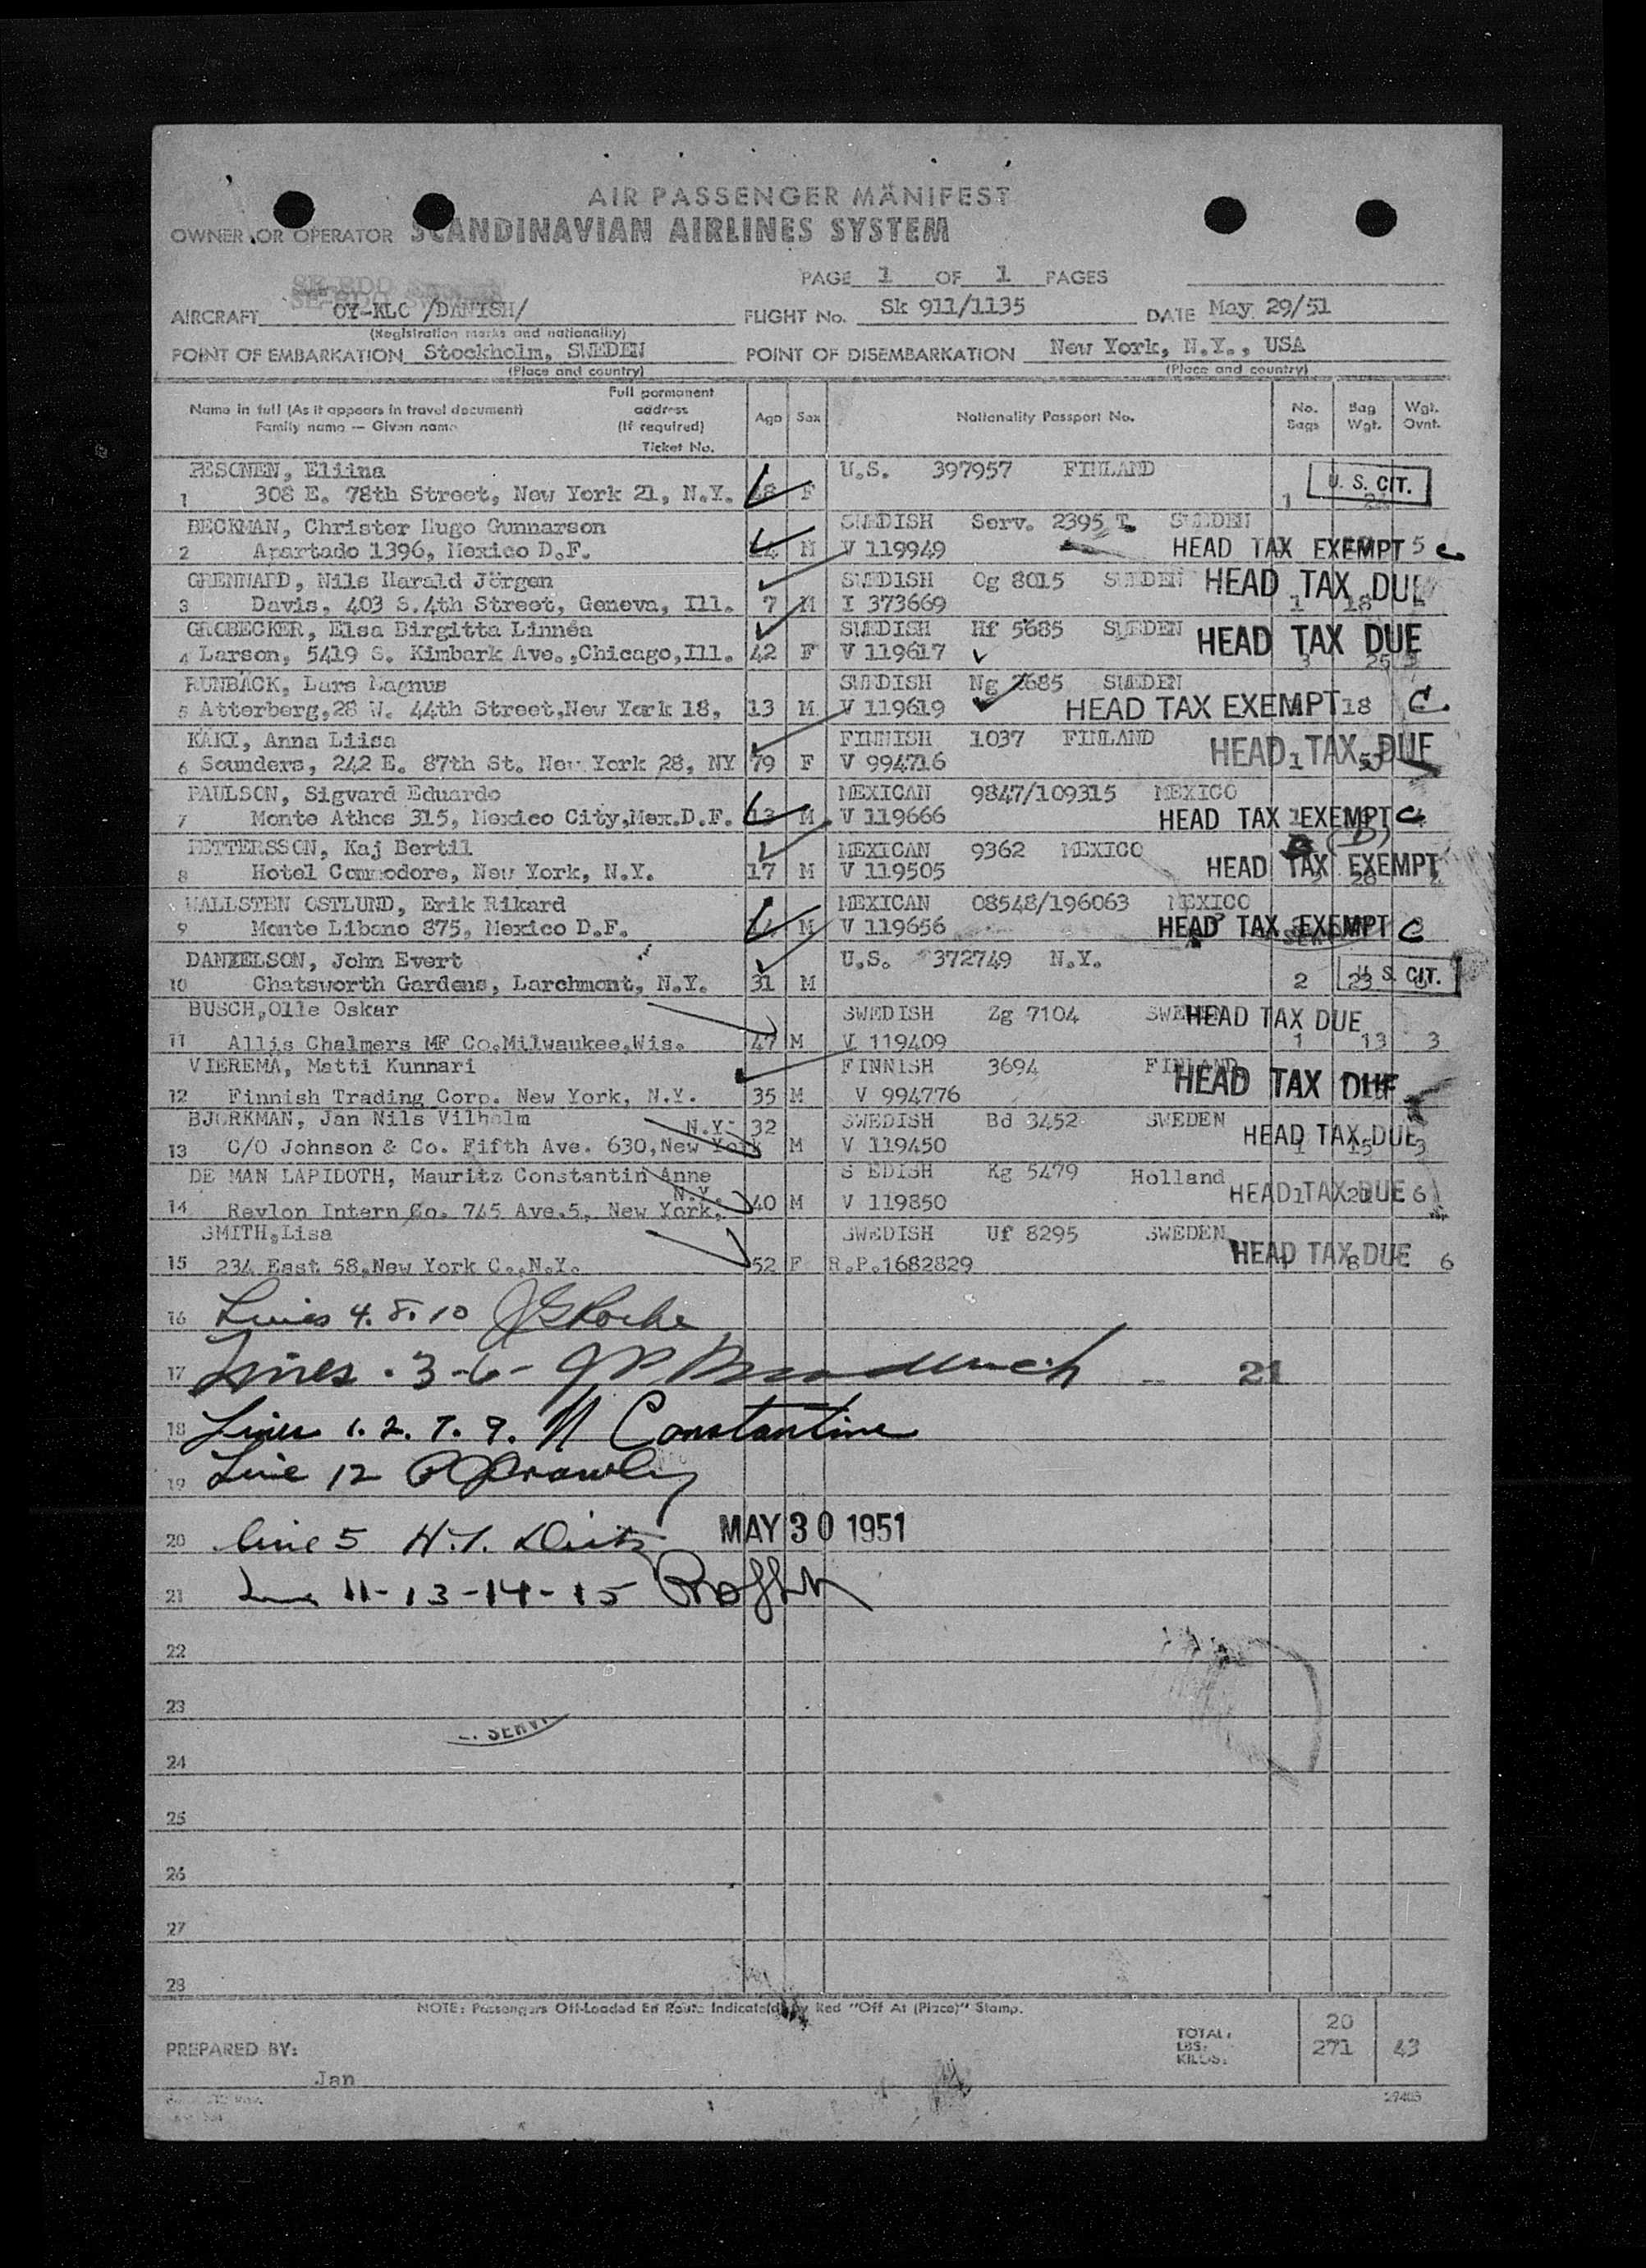 AIR PASSENGER MANIFEST
OWNER OR OPERATOR SCANDINAVIAN AIRLINES SYSTEM
PAGE 1 OF 1 PAGES
AIRCRAFT OY-KLC /DANISH/ FLIGHT No. Sk 911/1135 DATE May 29/51
(Registration marks and nationality)
POINT OF EMBARKATION Stockholm, SWEDEN POINT OF DISEMBARKATION New York, N.Y., USA
(Place and country) (Place and country)
Name in full (As it appears in travel document) Family name — Given name Full permanent address (If required) Ticket No. Age Sex Nationality Passport No. No. Bags Bag Wgt. Wgt. Ovnt.
PESONEN, Eliina U.S. 397957 FINLAND
1 308 E. 78th Street, New York 21, N.Y. F 1 U. S. CIT.
BECKMAN, Christer Hugo Gunnarson SWEDISH Serv. 2395 T. SWEDEN
2 Apartado 1396, Mexico D.F. M V 119949 HEAD TAX EXEMPT 5 C
GRENNARD, Nils Harald Jörgen SWEDISH Og 8015 SWEDEN HEAD TAX DUE
3 Davis, 403 S.4th Street, Geneva, Ill. 7 M I 373669 1 18
GROBECKER, Elsa Birgitta Linnéa SWEDISH Hf 5685 SWEDEN HEAD TAX DUE
4 Larson, 5419 S. Kimbark Ave.,Chicago,Ill. 42 F V 119617 3 25
RUNBÄCK, Lars Magnus SWEDISH Ng 2685 SWEDEN
5 Atterberg,28 W. 44th Street,New York 18, 13 M V 119619 HEAD TAX EXEMPT 18 C.
KAKI, Anna Liisa FINNISH 1037 FINLAND HEAD TAX DUE
6 Saunders, 242 E. 87th St. New York 28, NY 79 F V 994716 1
PAULSON, Sigvard Eduardo MEXICAN 9847/109315 MEXICO
7 Monte Athos 315, Mexico City,Mex.D.F. 13 M V 119666 HEAD TAX EXEMPT C
PETTERSSON, Kaj Bertil MEXICAN 9362 MEXICO
8 Hotel Commodore, New York, N.Y. 17 M V 119505 HEAD TAX EXEMPT
WALLSTEN OSTLUND, Erik Rikard MEXICAN 08548/196063 MEXICO
9 Monte Libano 875, Mexico D.F. 14 M V 119656 HEAD TAX EXEMPT C
DANIELSON, John Evert U.S. 372749 N.Y.
10 Chatsworth Gardens, Larchmont, N.Y. 31 M 2 23 U. S. CIT.
BUSCH,Olle Oskar SWEDISH Zg 7104 SWEDEN HEAD TAX DUE
11 Allis Chalmers MF Co.Milwaukee,Wis. 47 M V 119409 1 13 3
VIEREMÄ, Matti Kunnari FINNISH 3694 FINLAND HEAD TAX DUE
12 Finnish Trading Corp. New York, N.Y. 35 M V 994776
BJORKMAN, Jan Nils Vilhelm N.Y. 32 SWEDISH Bd 3452 SWEDEN HEAD TAX DUE
13 C/O Johnson & Co. Fifth Ave. 630,New York M V 119450 1 15 3
DE MAN LAPIDOTH, Mauritz Constantin Anne S EDISH Kg 5479 Holland
N.Y. HEAD TAX DUE
14 Revlon Intern Co. 745 Ave.5, New York, 40 M V 119850 1 21 6
SMITH,Lisa SWEDISH Uf 8295 SWEDEN HEAD TAX DUE
15 234 East 58,New York C.,N.Y. 52 F R.P.1682829 8 6
16 Lines 4. 8. 10
17 Lines 3-6- 21
18 Lines 1. 2. 7. 9. N Constantine
19 Line 12
20 line 5 MAY 30 1951
21 Line 11-13-14-15
22
23
24
25
26
27
28
NOTE: Passengers Off-Loaded En Route Indicated by Red "Off At (Place)" Stamp.
PREPARED BY: Jan TOTAL: 20
LBS. 271 43
KILOS.
29403